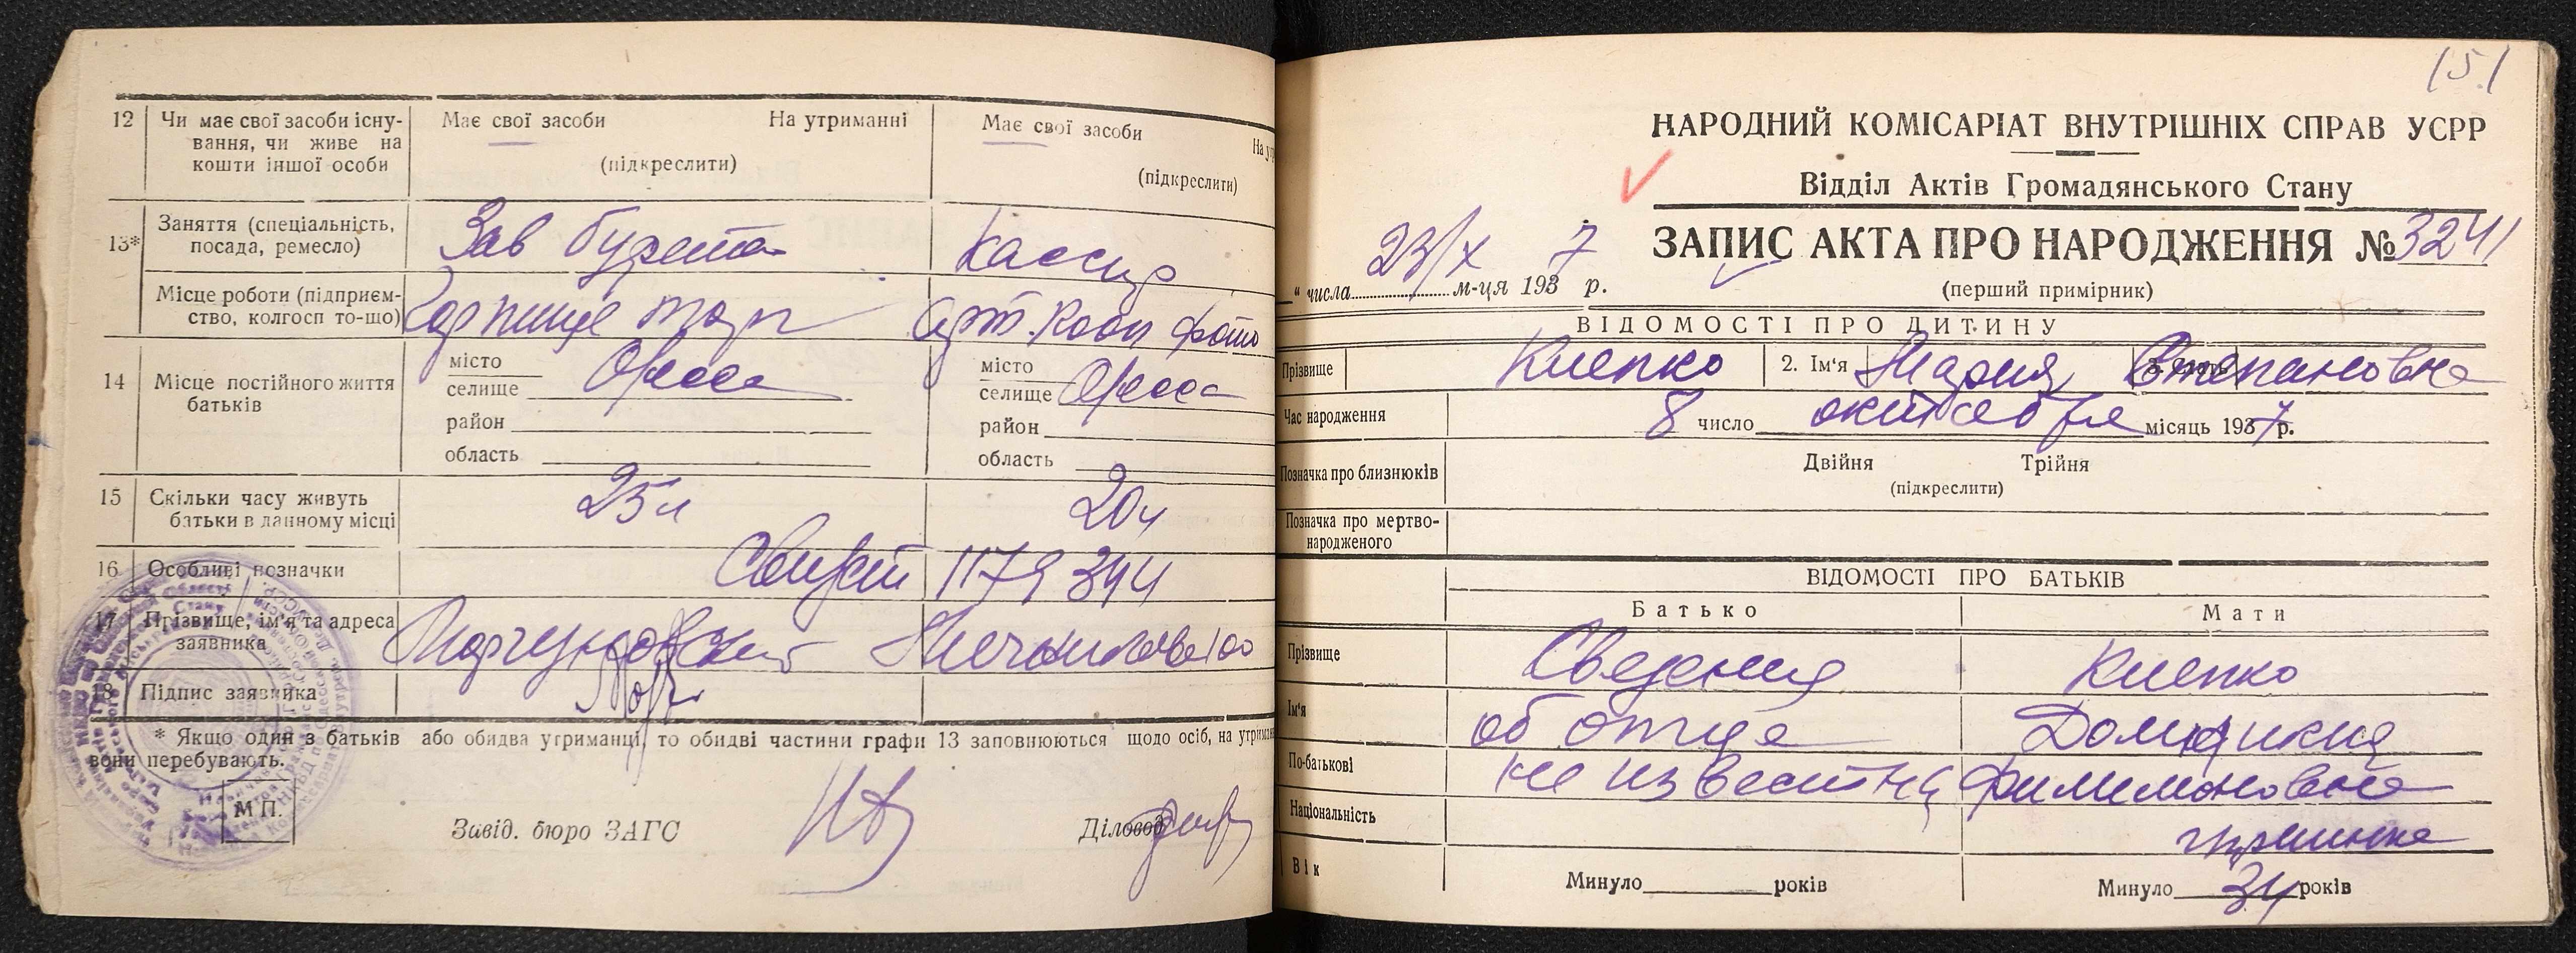 12
Чи має свої засоби існу-
вання, чи живе на
кошти іншої особи
Має свої засоби На утриманні
(підкреслити)
Має свої засоби
(підкреслити)
13*
Заняття (спеціальність,
посада, ремесло)
Зав буфета
Кассир
Місце роботи (підприєм-
ство, колгосп то-що)
Горпище торг
14
Місце постійного життя
батьків
місто
селище Одесса
район
область
місто
селище Одесса
район
область
15
Скільки часу живуть
батьки в данному місці
25 л
20 л
16
Особливі позначки
1179344
17
Прізвище, ім'я та адреса
заявника
18
Підпис заявника
* Якщо один з батьків або обидва утриманці, то обидві частини графи 13 заповнюються щодо осіб, на
вони перебувають.
М П.
Завід. бюро ЗАГС
Діловод
151
НАРОДНИЙ КОМІСАРІАТ ВНУТРІШНІХ СПРАВ УСРР
Відділ Актів Громадянського Стану
ЗАПИС АКТА ПРО НАРОДЖЕННЯ № 3241
(перший примірник)
" числа 23/X м-ця 1937 р.
ВІДОМОСТІ ПРО ДИТИНУ
Прізвище Клепко 2. Ім'я Мария Степановна
Час народження 8 число октября місяць 1937 р.
Позначка про близнюків
Двійня Трійня
(підкреслити)
Позначка про мертво-
народженого
ВІДОМОСТІ ПРО БАТЬКІВ
Батько Мати
Прізвище Сведения Клепко
Ім'я об отце Домникия
По-батькові не известны Филимоновна
Національність
Вік Минуло років Минуло 34 років